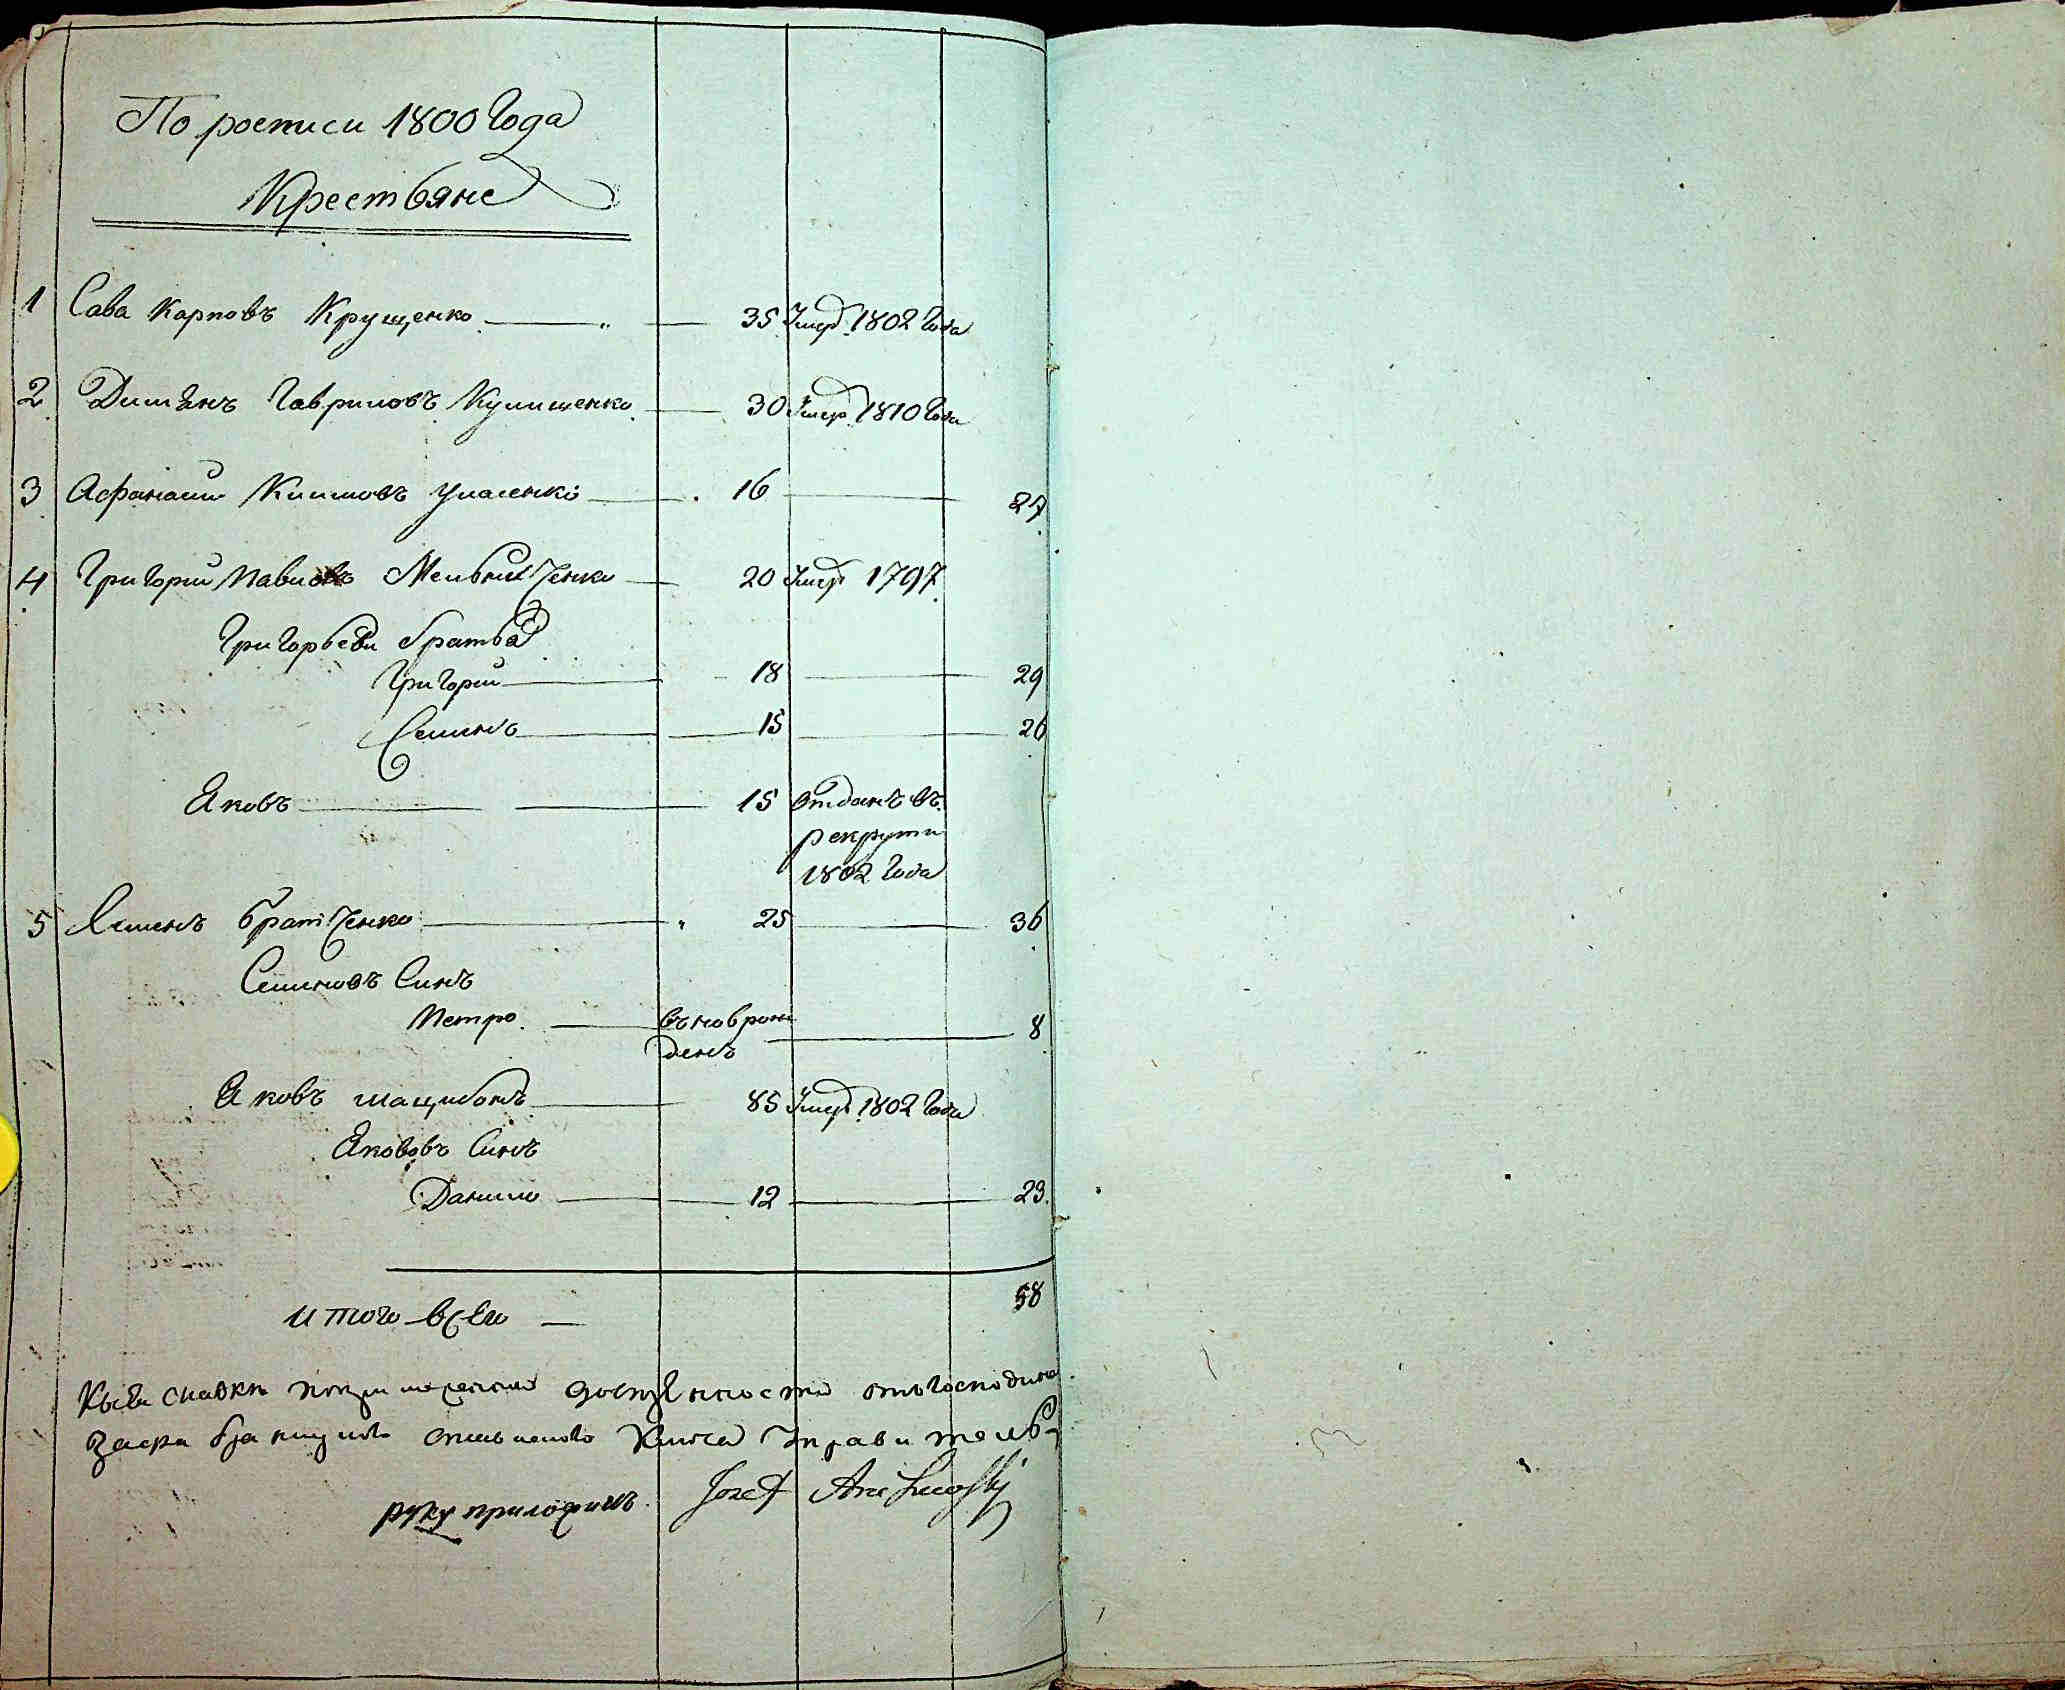 По росписи 1800 Года
Крестьяне
1 Сава Карповъ Крущенко 35 Умер 1802 Года
2 Гавриловъ 30 Умер 1810 Года
3 Афанасий Климовъ 16 27
4 Григорий Павловъ Мельниченко 20 Умер 1797
Григорьеви братья
Григорий 18 29
Семинъ 15 26
Яковъ 15 отданъ въ
рекрути
1802 Года
5 Братченко 25 36
Семиновъ Синъ
Петро въновь рож 8
денъ
Яковъ 85 Умер 1802 Года
Якововъ Синъ
Данило 12 23
итого всего 58
Къ сей скаски господина
управитель
руку приложилъ Jozef